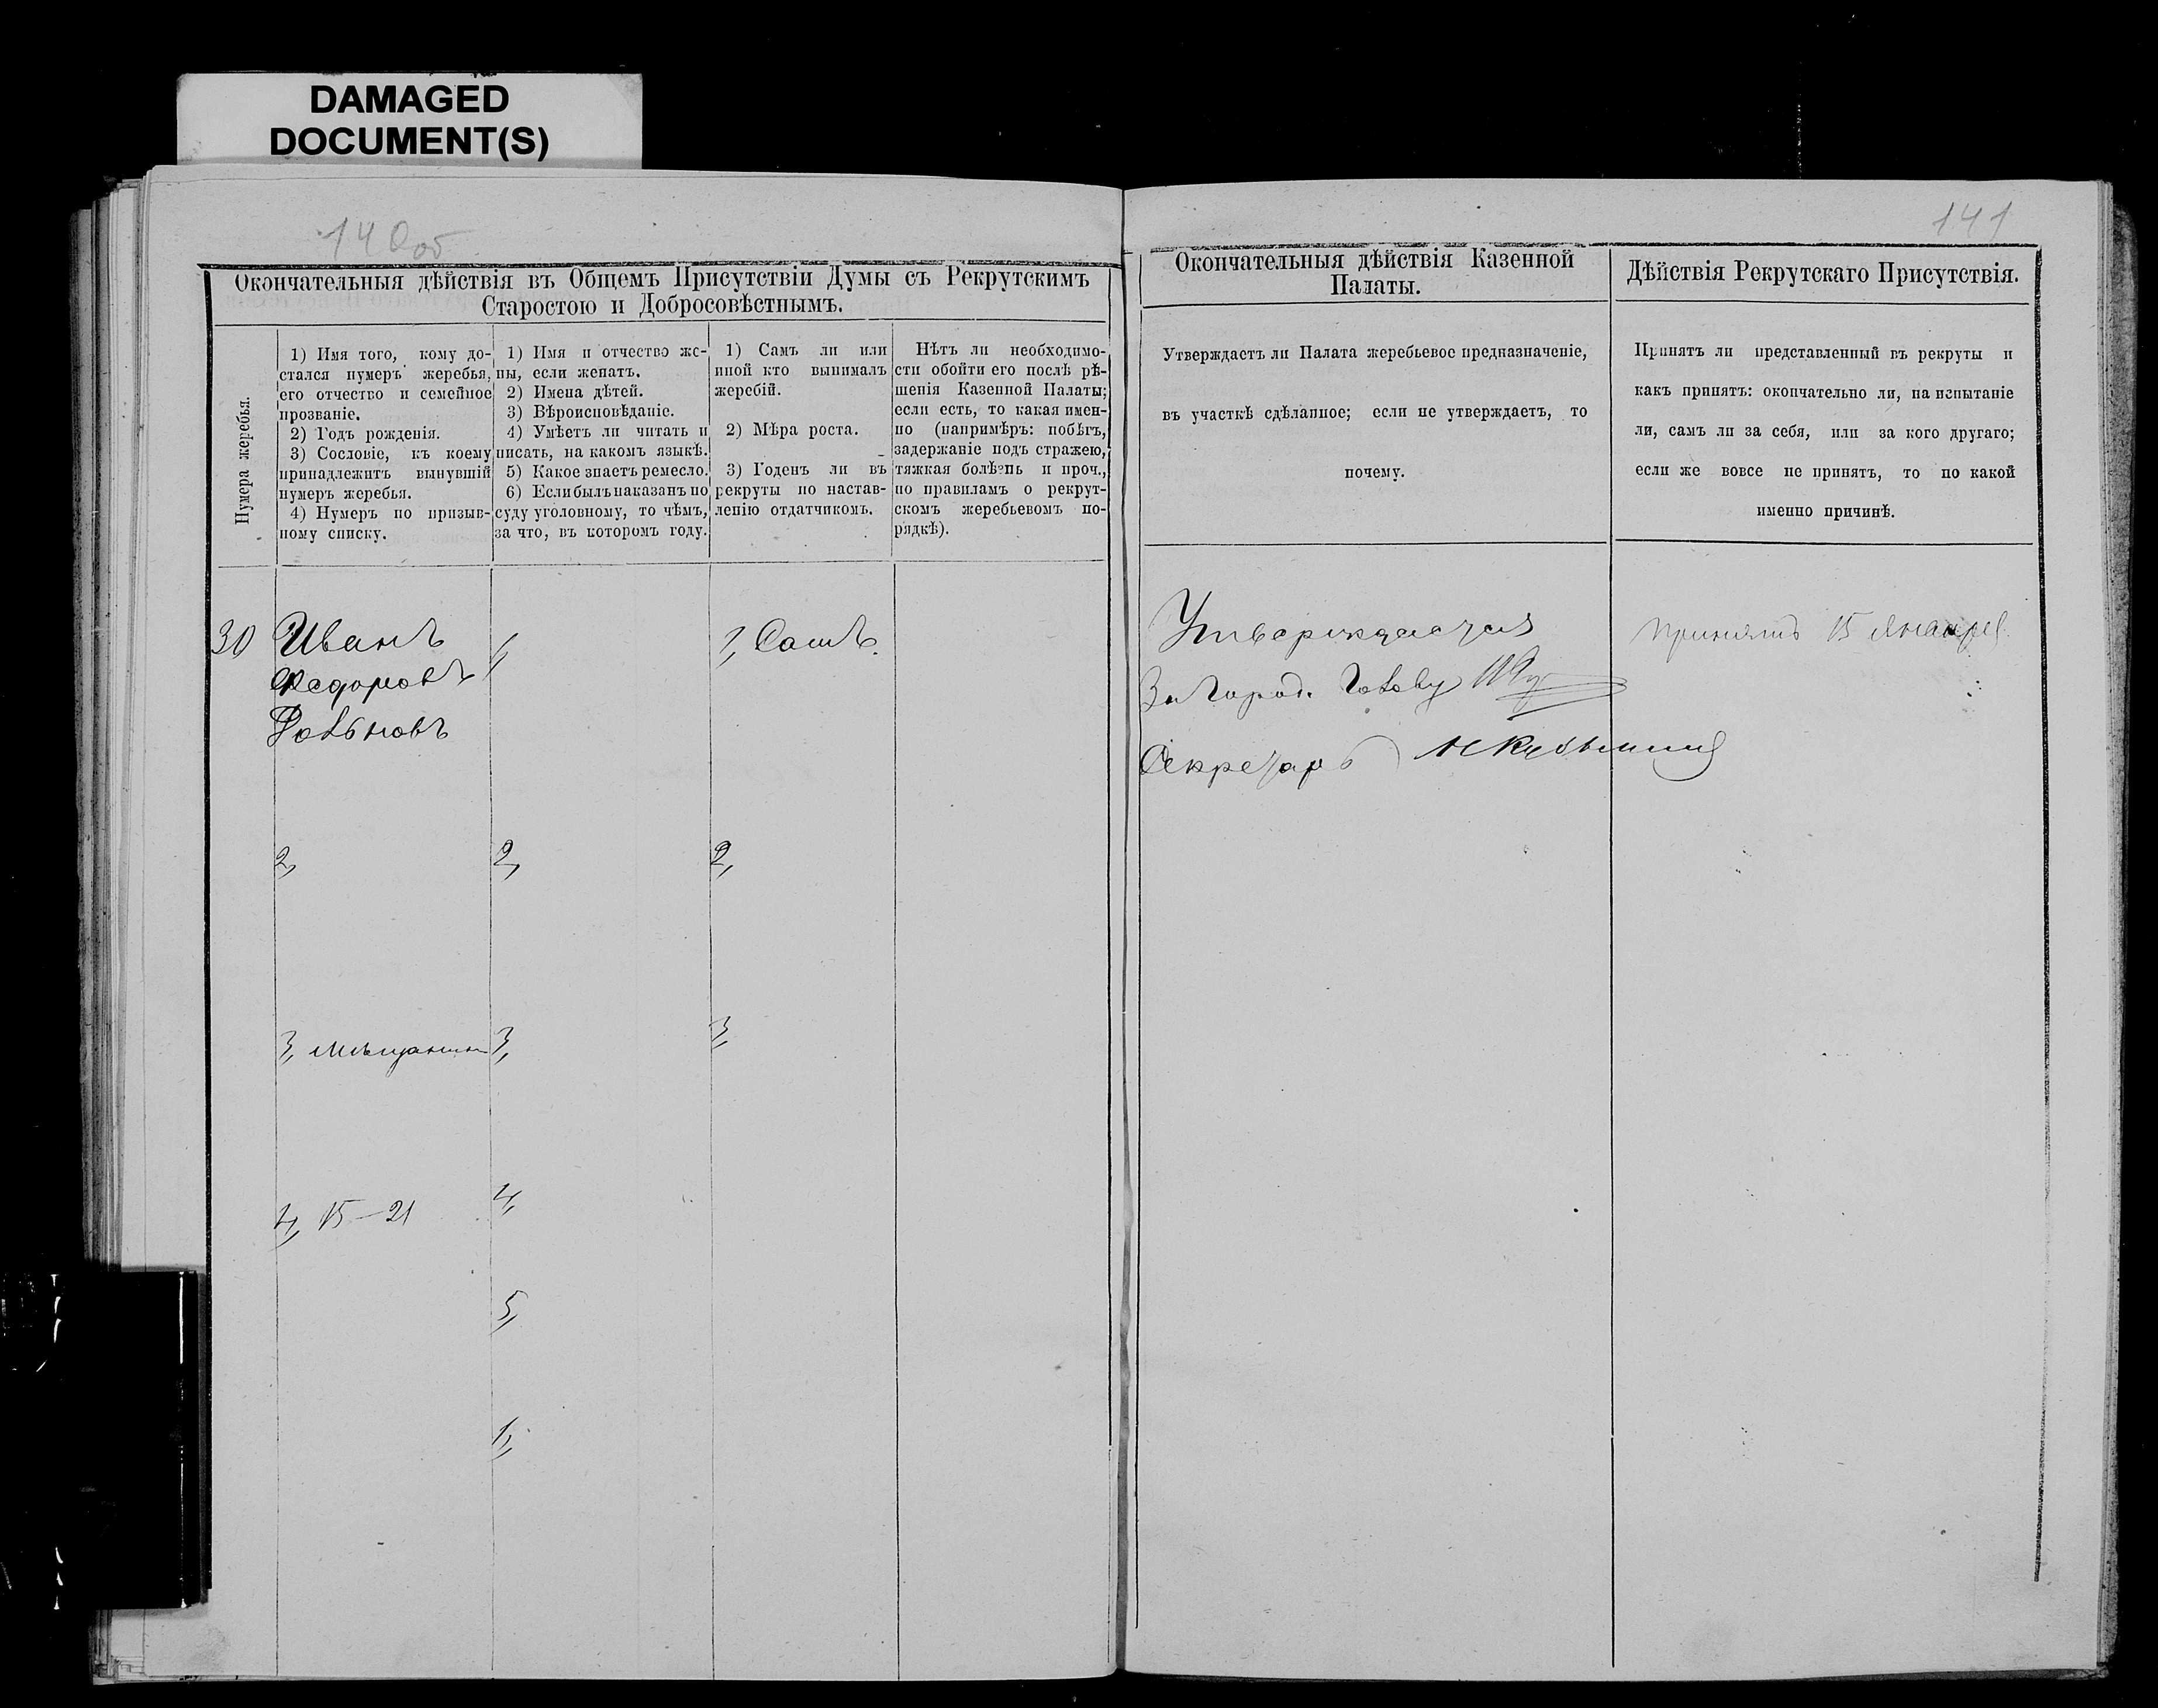 DAMAGED
DOCUMENT(S)
140об
Окончательныя дѣйствія въ Общемъ Присутствіи Думы съ Рекрутскимъ
Старостою и Добросовѣстнымъ.
Нумера жеребья.
1) Имя того, кому до-
стался нумеръ жеребья,
его отчество и семейное
прозваніе.
2) Годъ рожденія.
3) Сословіе, къ коему
принадлежитъ вынувшій
нумеръ жеребья.
4) Нумеръ по призыв-
ному списку.
1) Имя и отчество же-
ны, если женатъ.
2) Имена дѣтей.
3) Вѣроисповѣданіе.
4) Умѣетъ ли читать и
писать, на какомъ языкѣ.
5) Какое знаетъ ремесло.
6) Если былъ наказанъ по
суду уголовному, то чѣмъ,
за что, въ которомъ году.
1) Самъ ли или
иной кто вынималъ
жеребій.
2) Мѣра роста.
3) Годенъ ли въ
рекруты по настав-
ленію отдатчикомъ.
Нѣтъ ли необходимо-
сти обойти его послѣ рѣ-
шенія Казенной Палаты;
если есть, то какая имен-
но (напримѣръ: побѣгъ,
задержаніе подъ стражею,
тяжкая болѣзнь и проч.,
по правиламъ о рекрут-
скомъ жеребьевомъ по-
рядкѣ).
30
Иванъ
Федоровъ
2,
3, Мѣщанинъ
4, 15—21
1,
2,
3,
4,
5,
1, Самъ.
2,
3,
141
Окончательныя дѣйствія Казенной
Палаты.
Утверждаетъ ли Палата жеребьевое предназначеніе,
въ участкѣ сдѣланное; если не утверждаетъ, то
почему.
Утверждается
За Город. Голову
Секретарь
Дѣйствія Рекрутскаго Присутствія.
Принятъ ли представленный въ рекруты и
какъ принятъ: окончательно ли, на испытаніе
ли, самъ ли за себя, или за кого другаго;
если же вовсе не принятъ, то по какой
именно причинѣ.
принятъ 15 Января